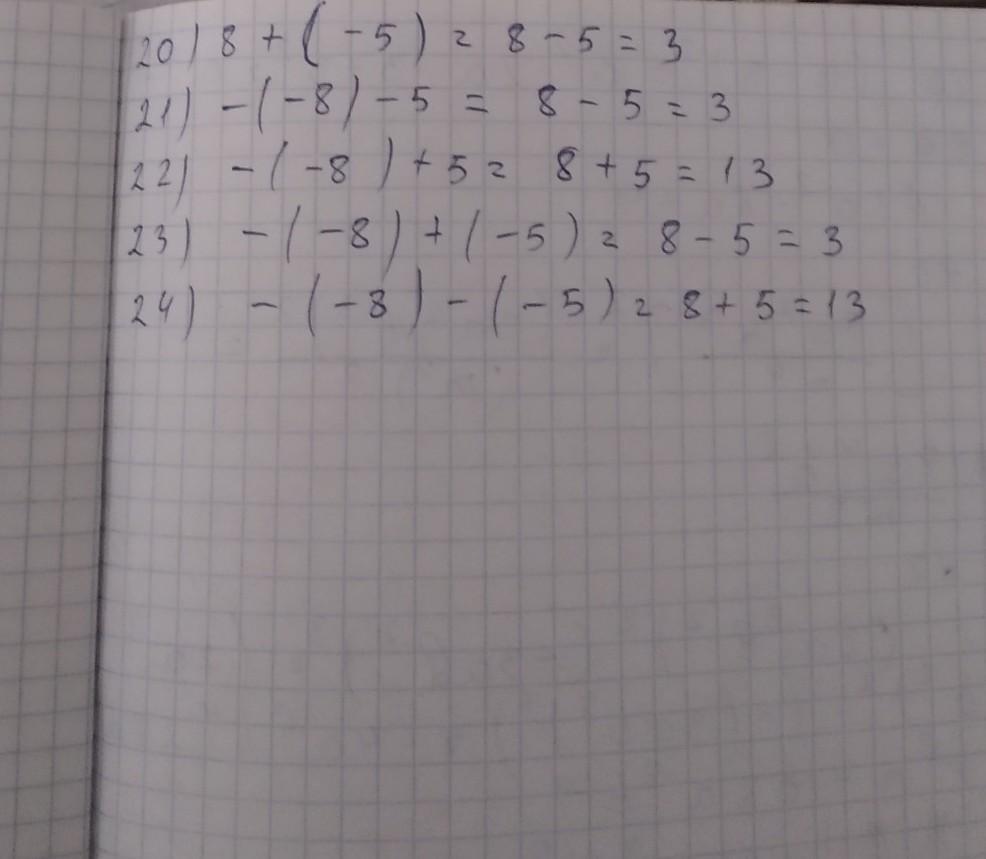 20) 8 + ( - 5 ) = 8 - 5 = 3
21) - ( - 8 ) - 5 = 8 - 5 = 3
22) - ( - 8 ) + 5 = 8 + 5 = 13
23) - ( - 8 ) + ( - 5 ) = 8 - 5 = 3
24) - ( - 8 ) - ( - 5 ) = 8 + 5 = 13